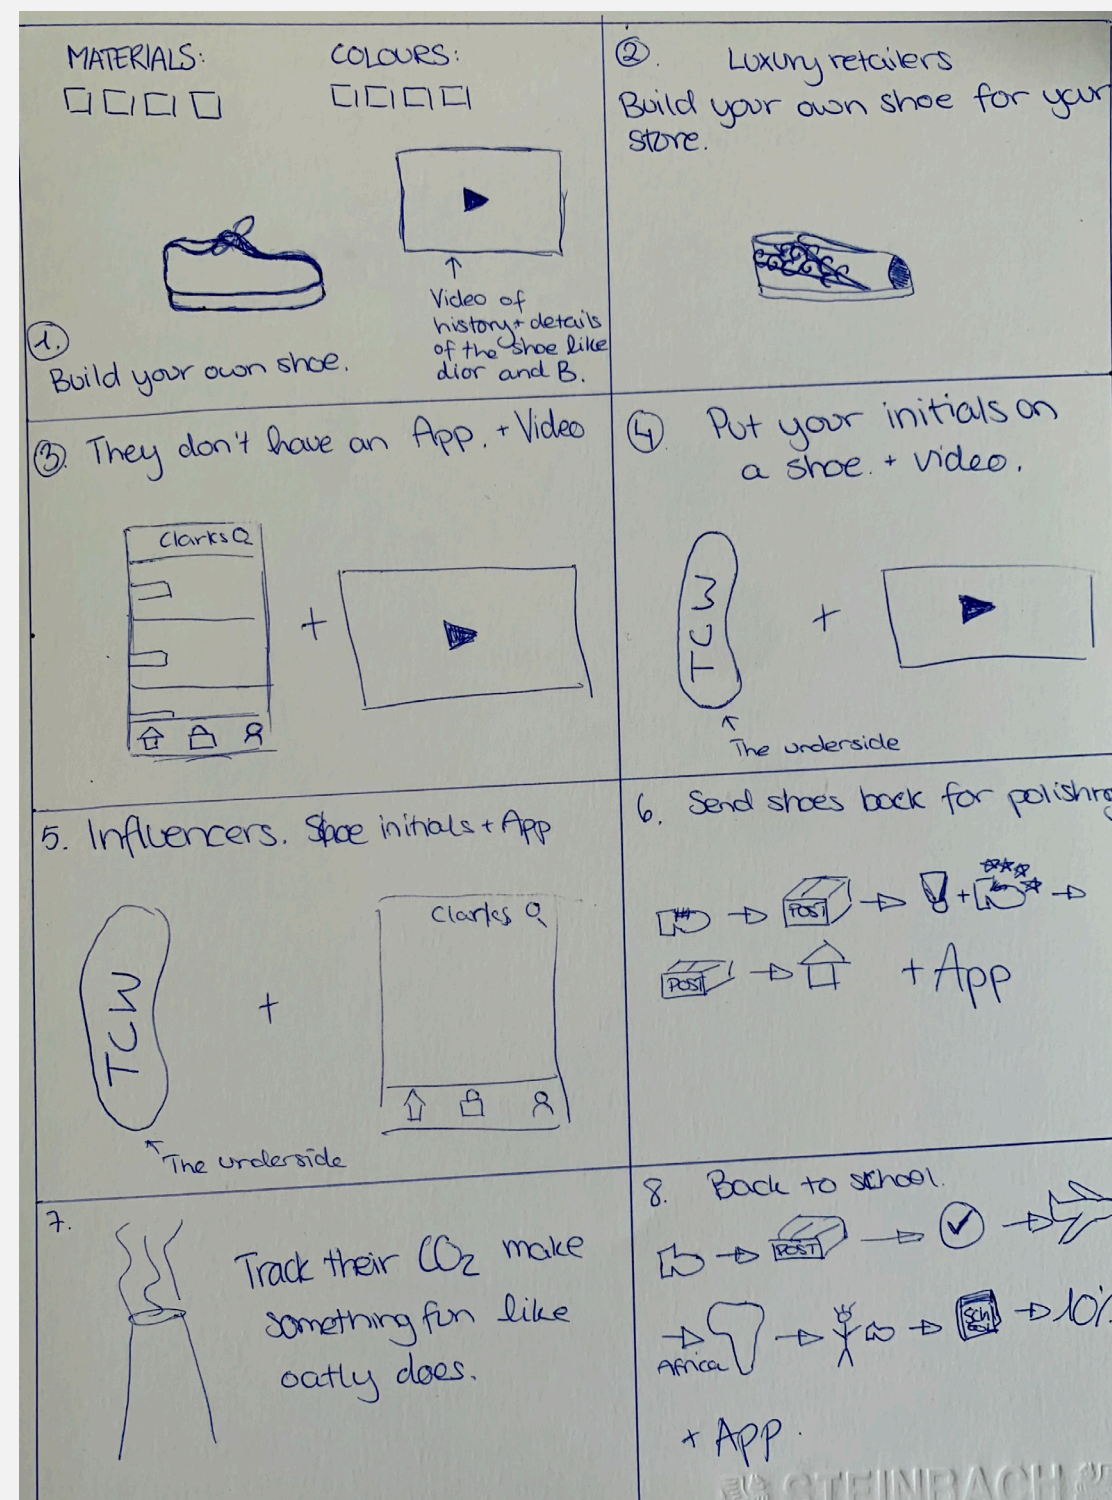 MATERIALS:
COLOURS:
Video of
history + details
of the shoe like
dior and B.
1.
Build your own shoe.
2.
Luxury retailers
Build your own shoe for your
store.
3. They don't have an App. + Video
Clarks
+
4. Put your initials on
a shoe. + video.
TCW
+
The underside
5. Influencers. Shoe initials + App
TCW
+
Clarks
The underside
6. Send shoes back for
POST
+
POST
+ App
7.
Track their CO2 make
something fun like
oatly does.
8. Back to school.
POST
Africa
10%
+ App.
STEINBACH